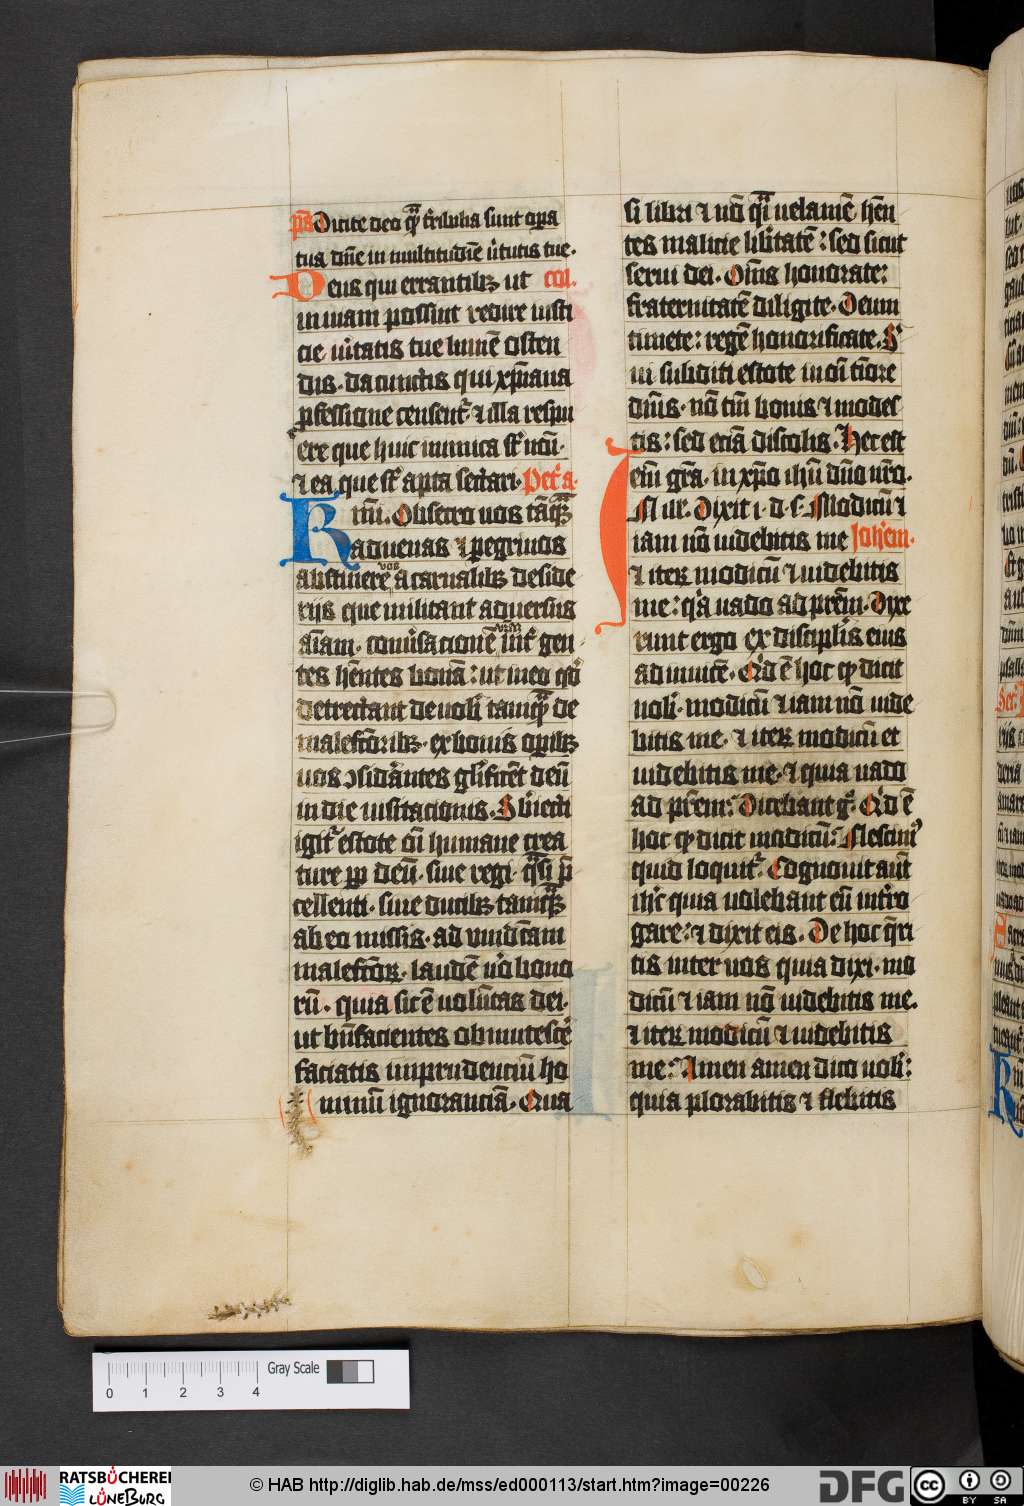 p̄s Dicite deo q̄ t̄ribilia sunt opa
tua dn̄e in multitudīe v̓tutis tue.
Deus qui errantibꝫ ut coll.
in uiam possint redire iusti
cie u̓itatis tue lumē osten
dis. da cunctis qui xp̄iana
ꝓfessione censent᷑. ⁊ illa respu
ere que huic inimica st̄ noī.
⁊ ea que st̄ apta sectari. Pet̓ a.
Km̄i. Obsecro uos tāq̄
aduenas ⁊ pegrinos
abstinere vos a carnalibꝫ deside
rijs que militant aduersus
aīam. conu̓sacionē vr̄am int̓ gen
tes hn̄tes bonā: ut in eo qd̓
detrectant de uob̓ tamq̄ de
malefc̄oribꝫ. ex bonis opibꝫ
uos ↄsid̓antes gl̓ificēt deū
in die uisitacionis. Subiecti
igit᷑ estote oī humane crea
ture pp̄ deū. siue regi. q̄si p̄
cellenti. siue ducibꝫ tamq̄
ab eo missis. ad uindc̄am
malefc̄oꝝ. laudē u̓o bono
rū. quia sic ē uolūtas dei.
ut bn̄facientes obmutesce̓
faciatis imprudenciū ho
minū ignoranciā. Qua
si libri ⁊ nō q̄i uelamē hēn
tes malicie lib̓tatē: sed sicut
serui dei. Om̄s honorate:
fraternitatē diligite. Deum
timete: regē honorificate. S̓
ui subditi estote in oī tiōre
dn̄is. nō tm̄ bonis ⁊ modes
tis: sed eciā discolis. Hec est
em̄ gr̄a. in xp̄o ih̄u dn̄o nr̄o.
IN ill̓. Dixit i. d. s. Modicū ⁊
iam nō uidebitis me Joh̓em.
⁊ iteꝝ modicū ⁊ uidebitis
me: q̓a uado ad pr̄em. Dixe
runt ergo ex discipl̓is eius
ad inuicē. Qd̓ ē hoc qđ dicit
nob̓. modicū ⁊ iam nō uide
bitis me. ⁊ iteꝝ modicū et
uidebitis me. ⁊ quia uado
ad pr̄em: Dicebant g̓. Qd̓ ē
hoc qđ dicit modicū: Nescim᷒
quid loquit᷑. Cognouit aūt
ih̓c quia uolebant eū int̓ro
gare: ⁊ dixit eis. De hoc q̄ri
tis inter uos quia dixi. mo
dicū ⁊ iam nō uidebitis me.
⁊ iteꝝ modicū ⁊ uidebitis
me: Amen amen dico uob̓:
quia plorabitis ⁊ flebitis
Gray Scale
0 1 2 3 4
RATSBÜCHEREI
LÜNEBURG
© HAB http://diglib.hab.de/mss/ed000113/start.htm?image=00226
DFG
cc BY SA